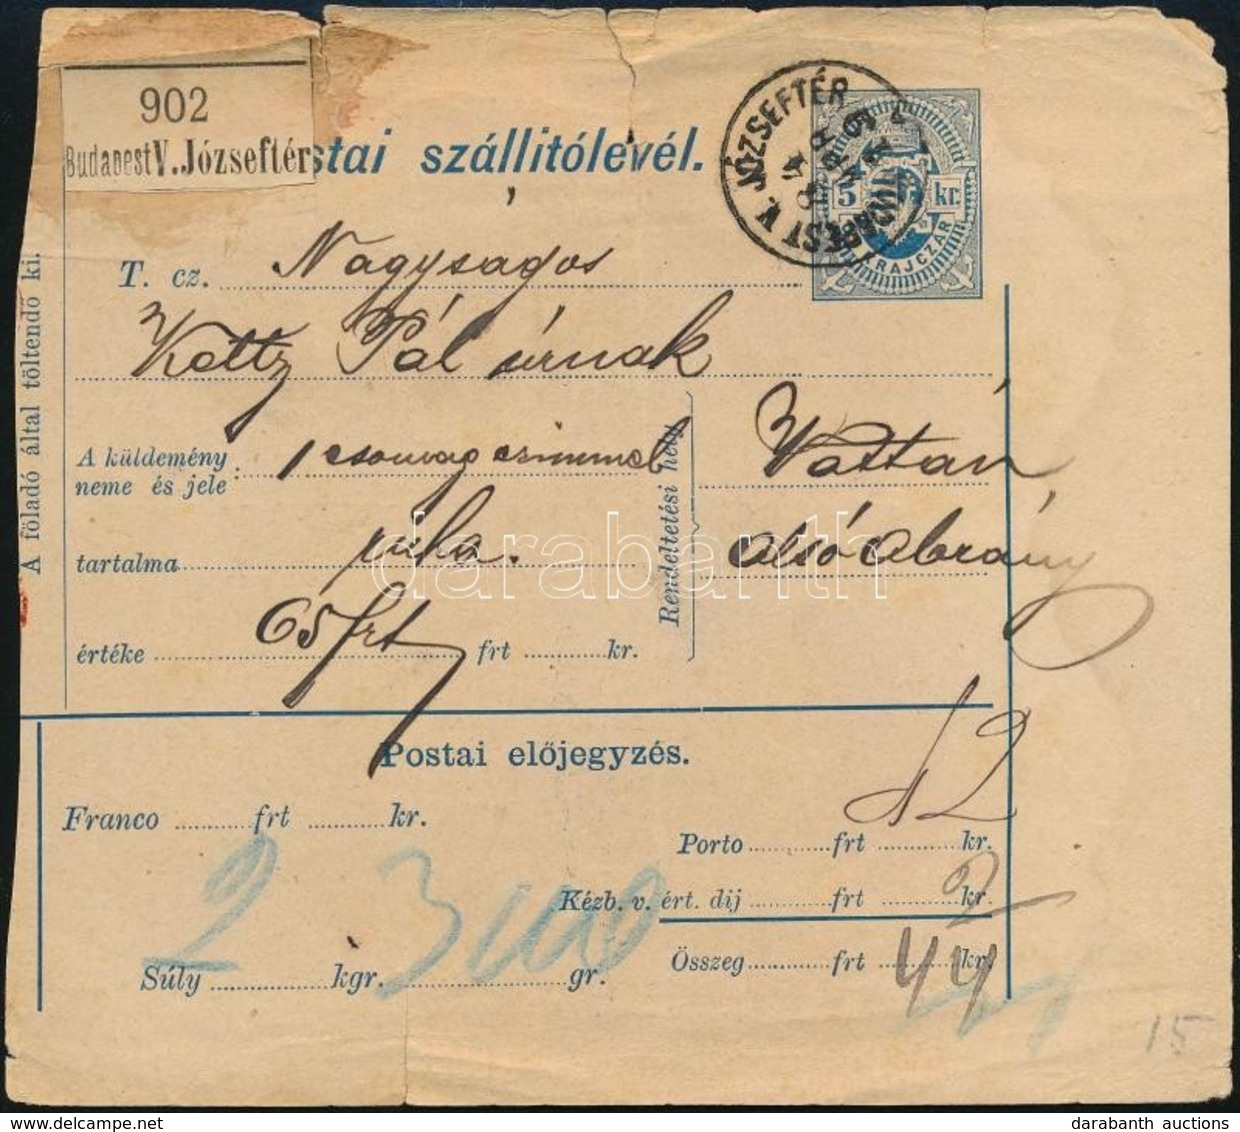 902
Budapest V. Józseftér
stai szállitólevél.
BUDAPEST V. JÓZSEFTÉR
5 kr.
KRAJCZÁR
A föladó által töltendő ki.
T. cz. Nagyságos
Kottz Pál úrnak
A küldemény
neme és jele : 1 csomag czimmel
tartalma ruha.
értéke 65 frt frt kr.
Rendeltetési hely
Vattán
Alsó Abrány
Postai előjegyzés.
Franco frt kr.
Porto frt kr. 42
Kézb. v. ért. dij frt kr. 2
Összeg frt kr. 44
Súly 2 kgr. gr.
15
darabanth
darabanth auctions